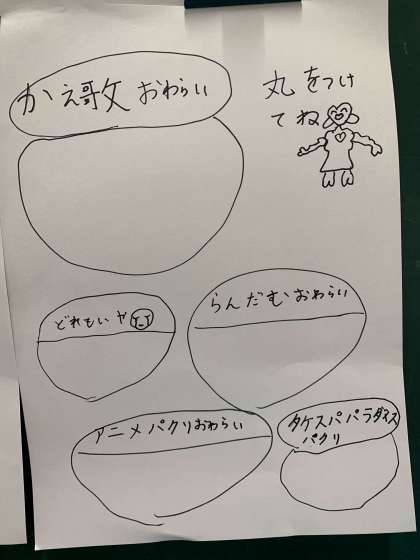 かえ歌おわらい
丸をつけ
てね
どれもいヤ
らんだむおわらい
アニメパクリおわらい
タケスパパラダイス
パクリ